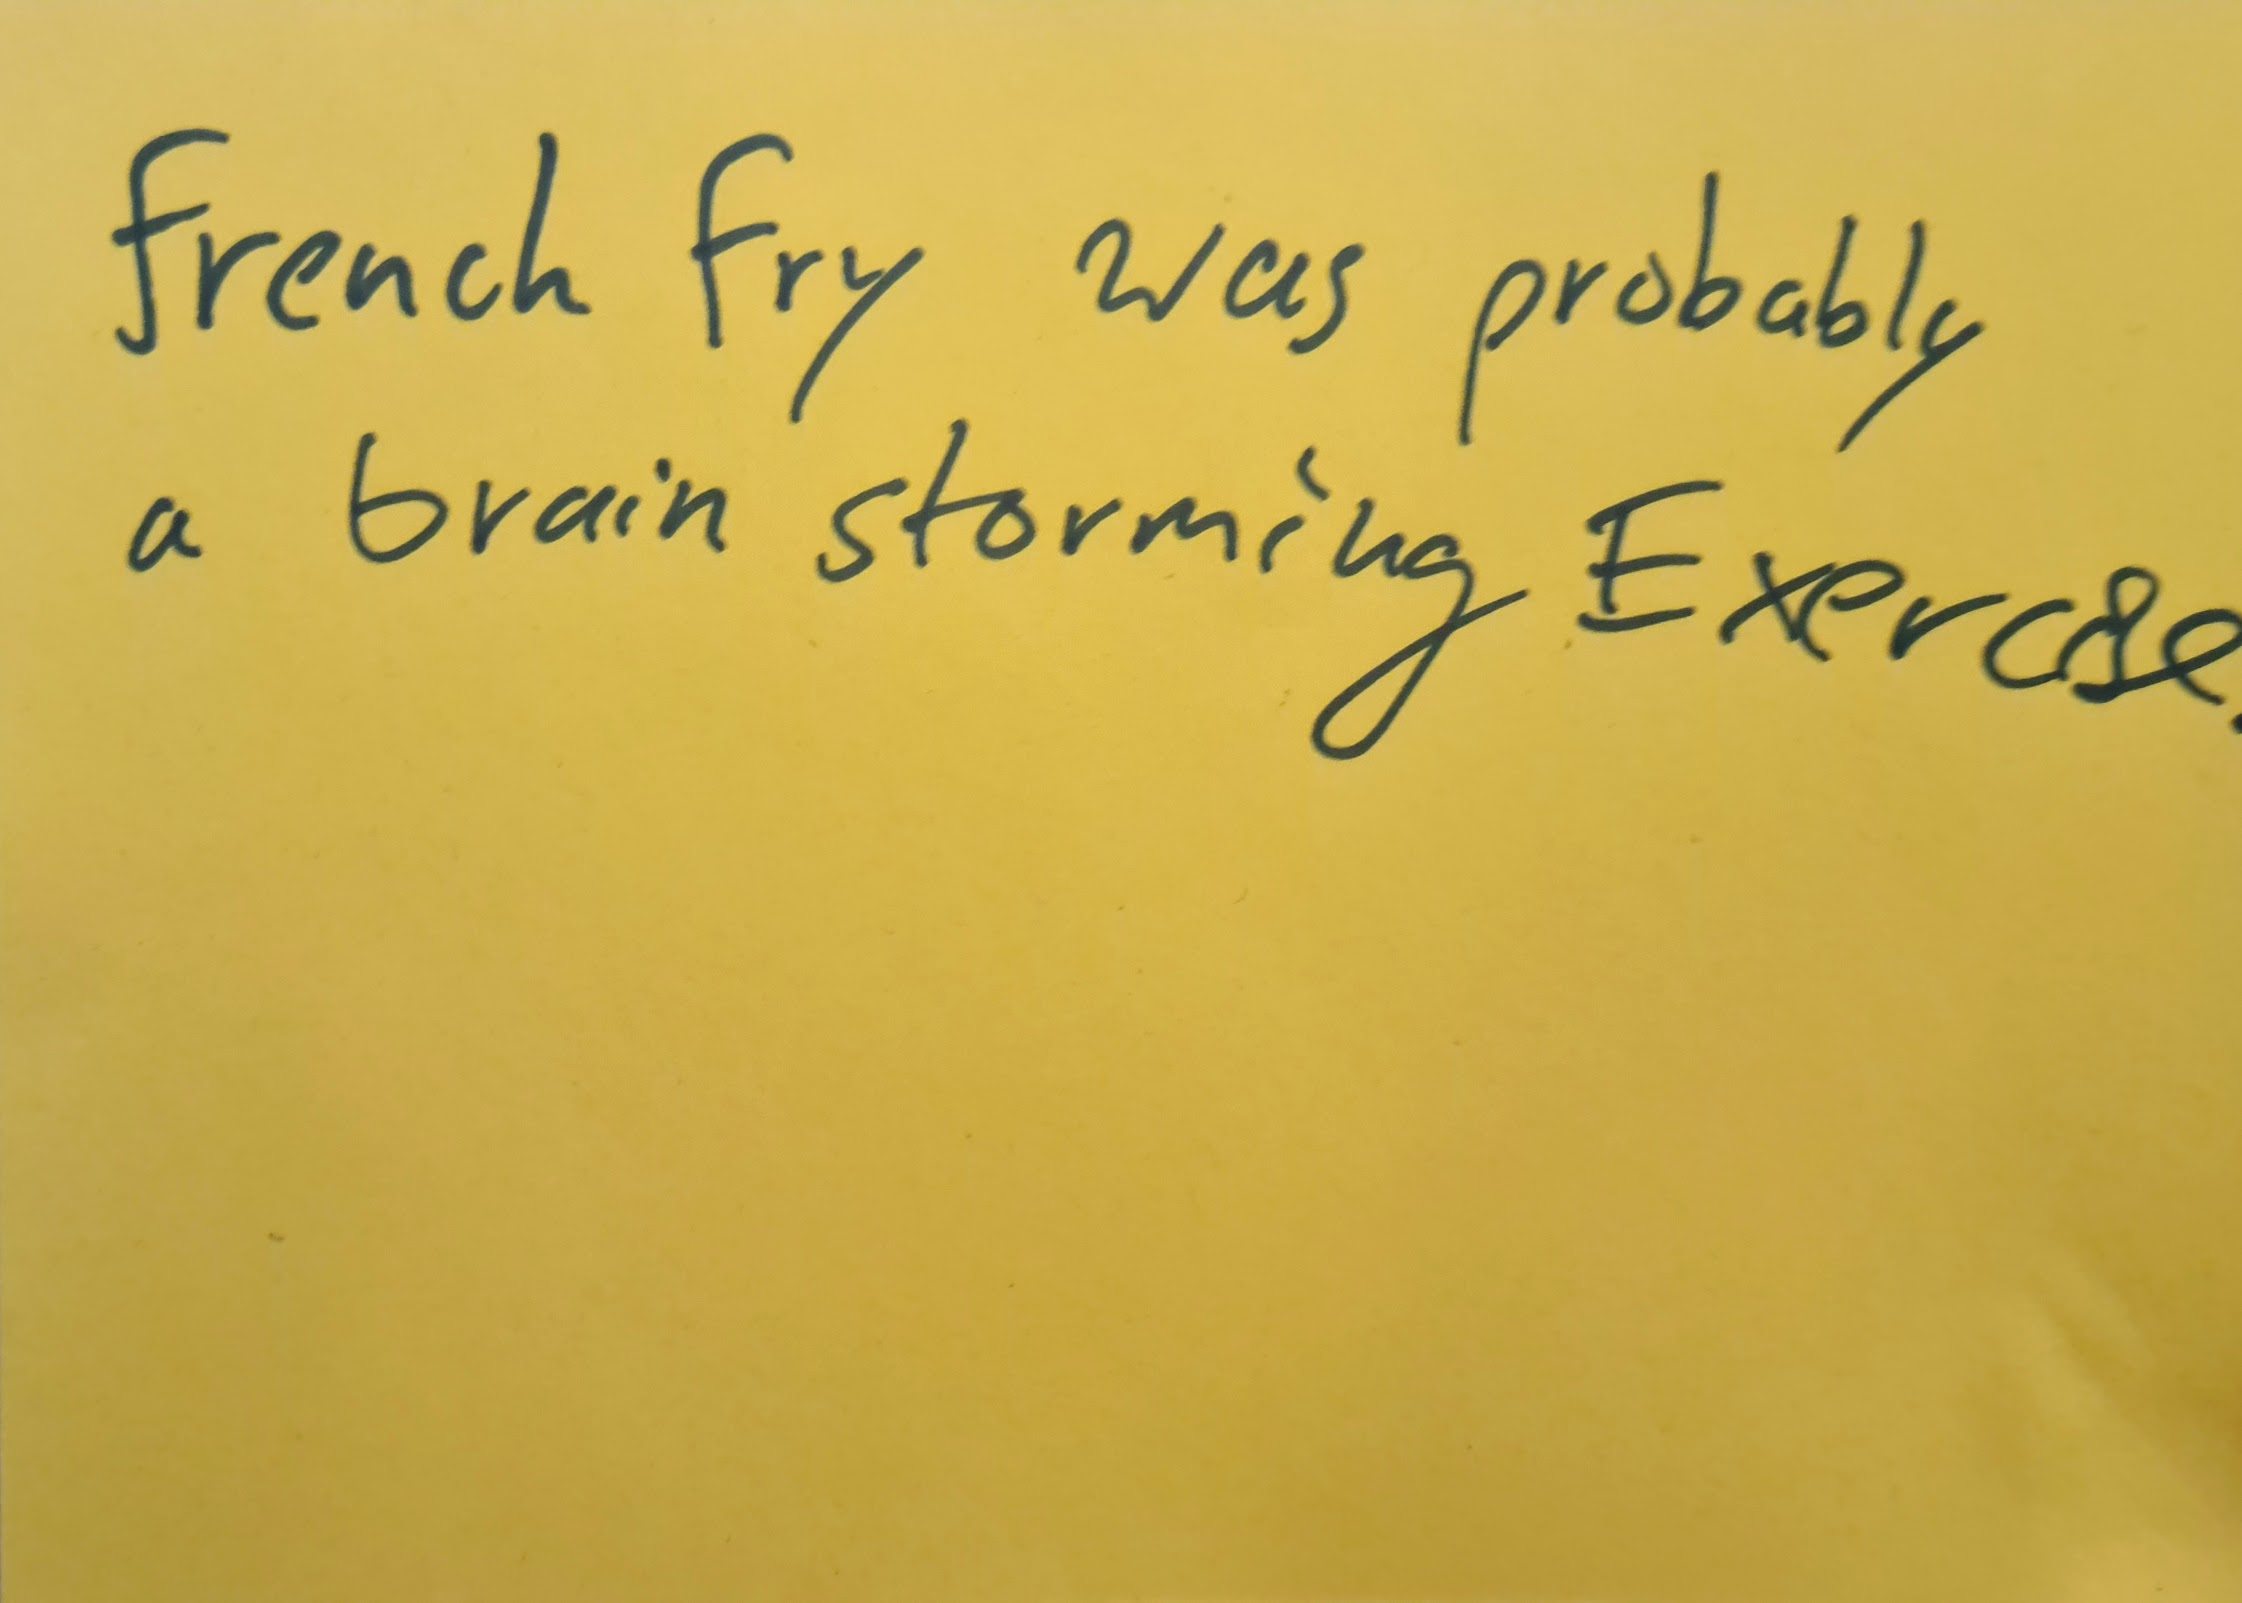 french fry was probably
a brain storming Exercise.